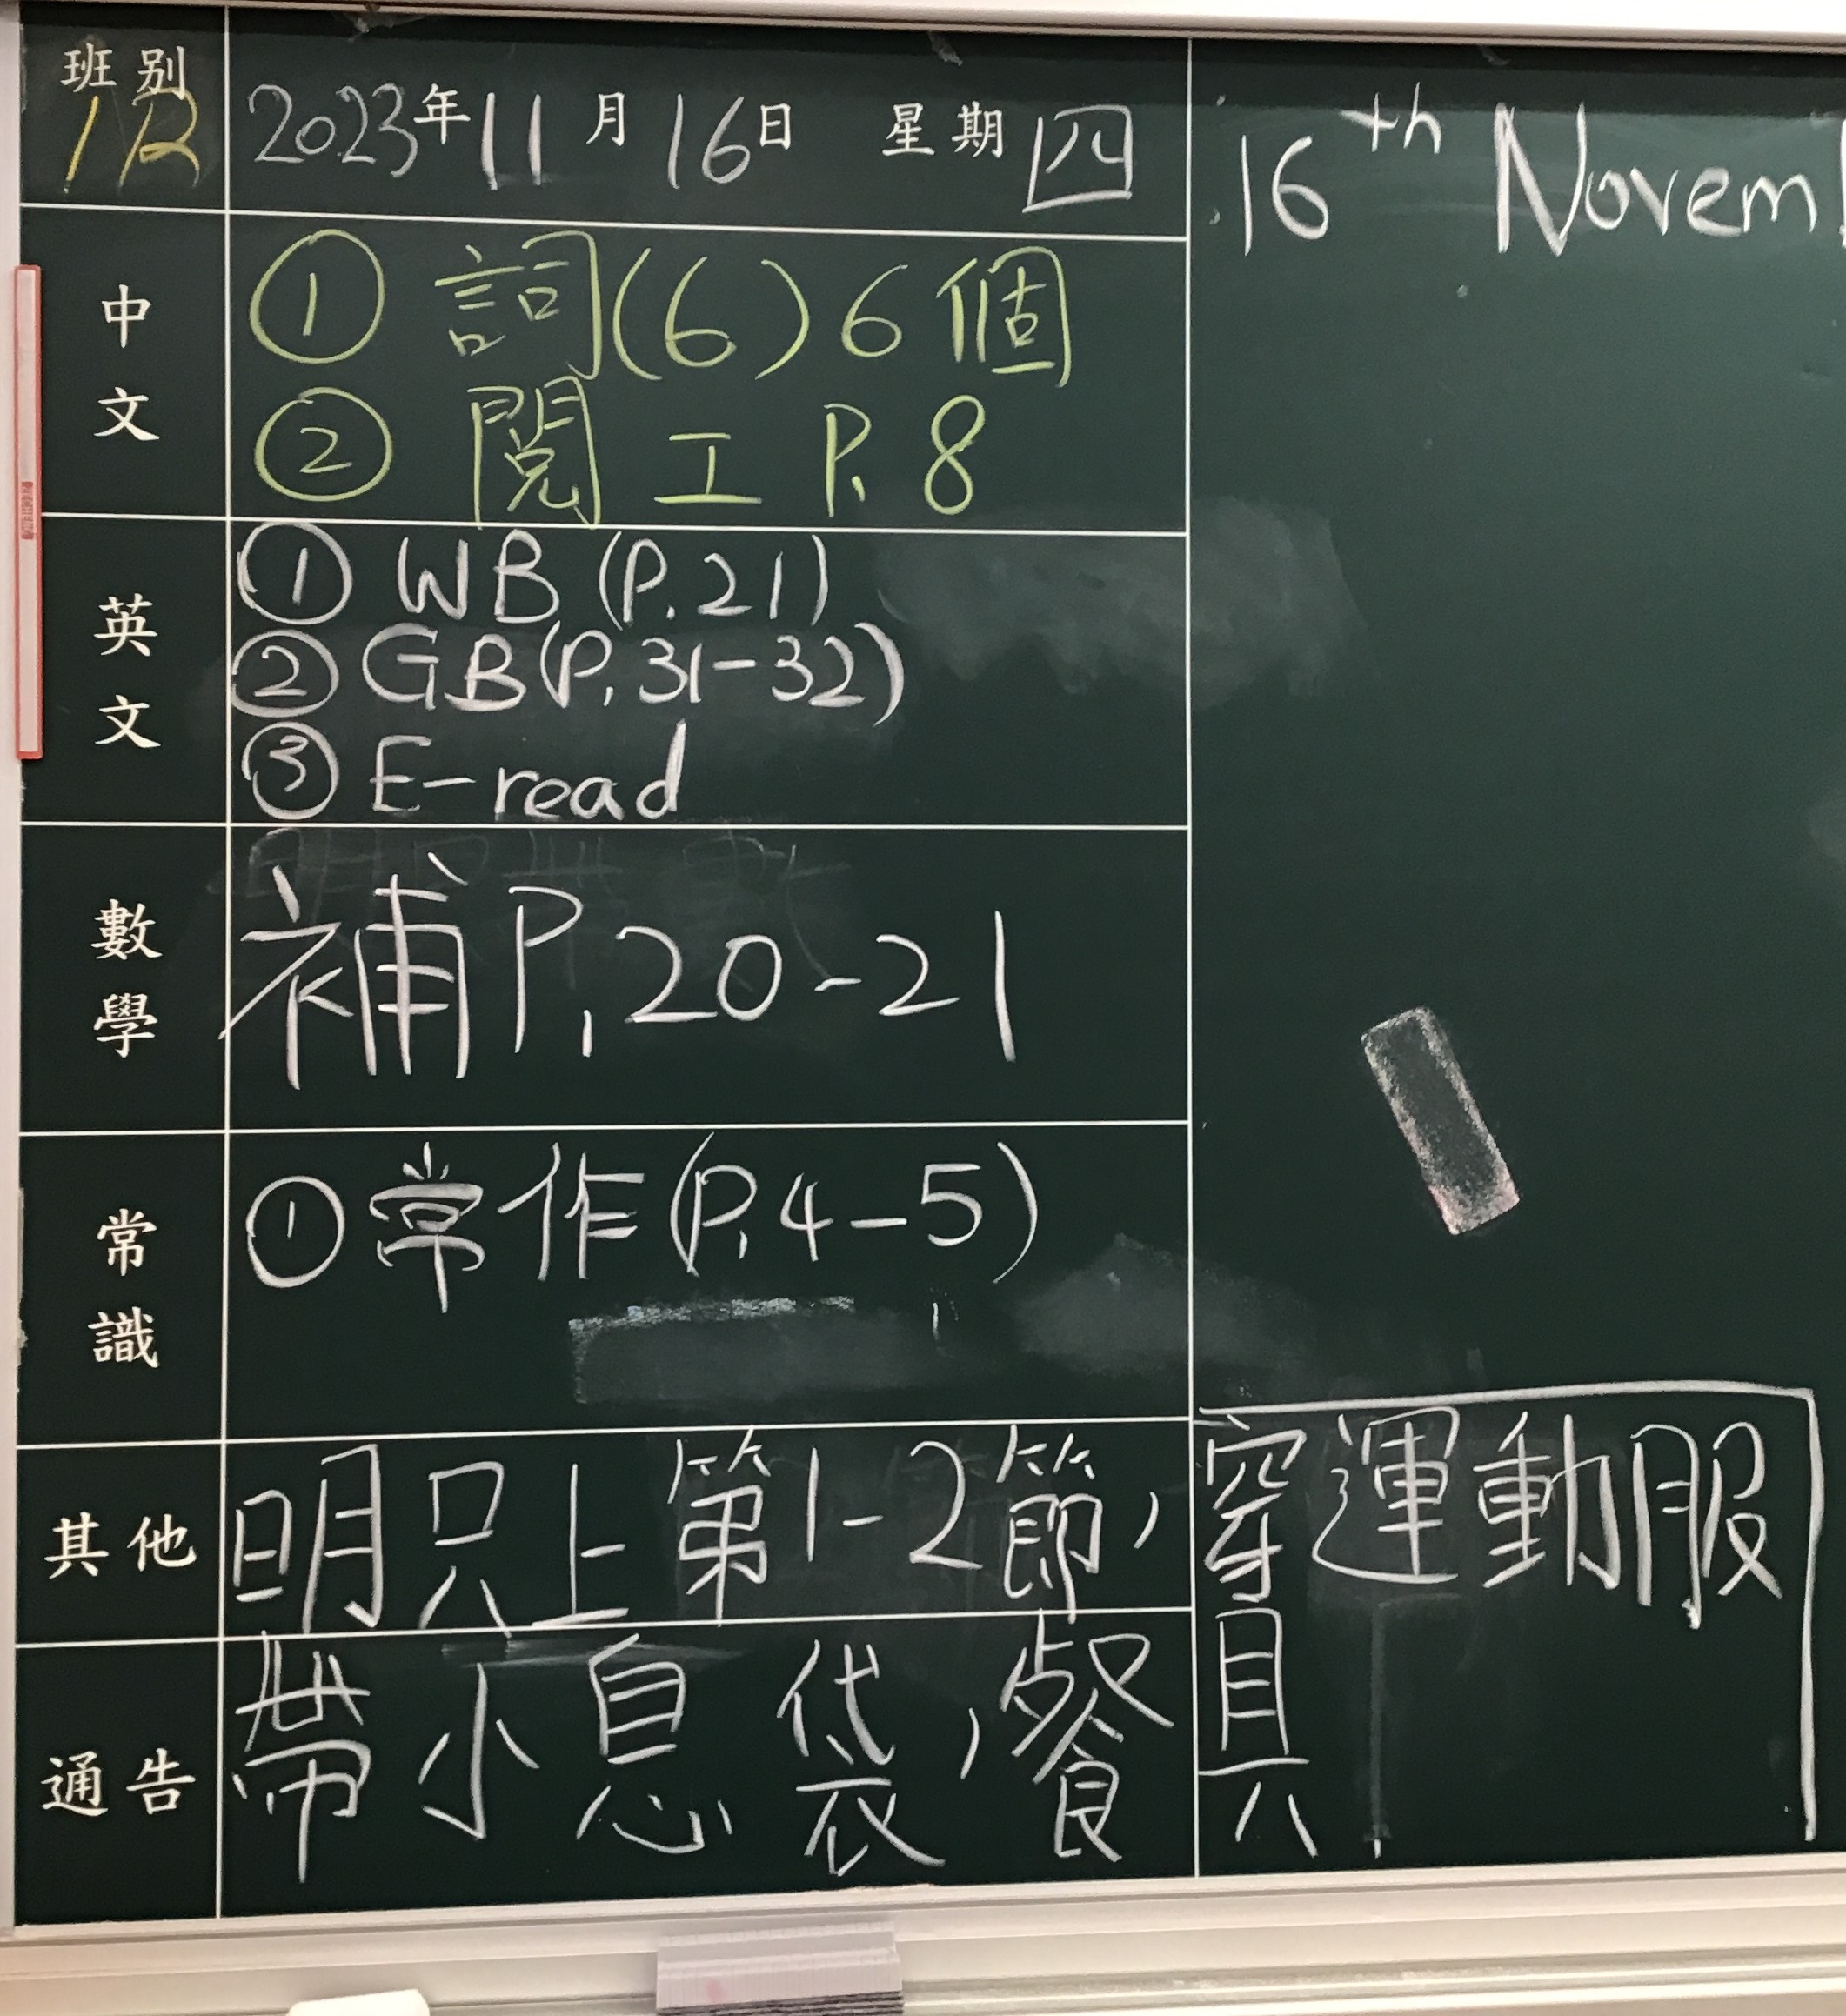 班別
1R
2023年11月16日 星期四
16th Novem
中文
① 詞(6)6個
② 閱工P.8
英文
① WB (P.21)
② GB (P.31-32)
③ E-read
數學
補P.20-21
常識
① 常作(P.4-5)
其他
明只上第1-2節,穿運動服
通告
帶小息袋,餐具